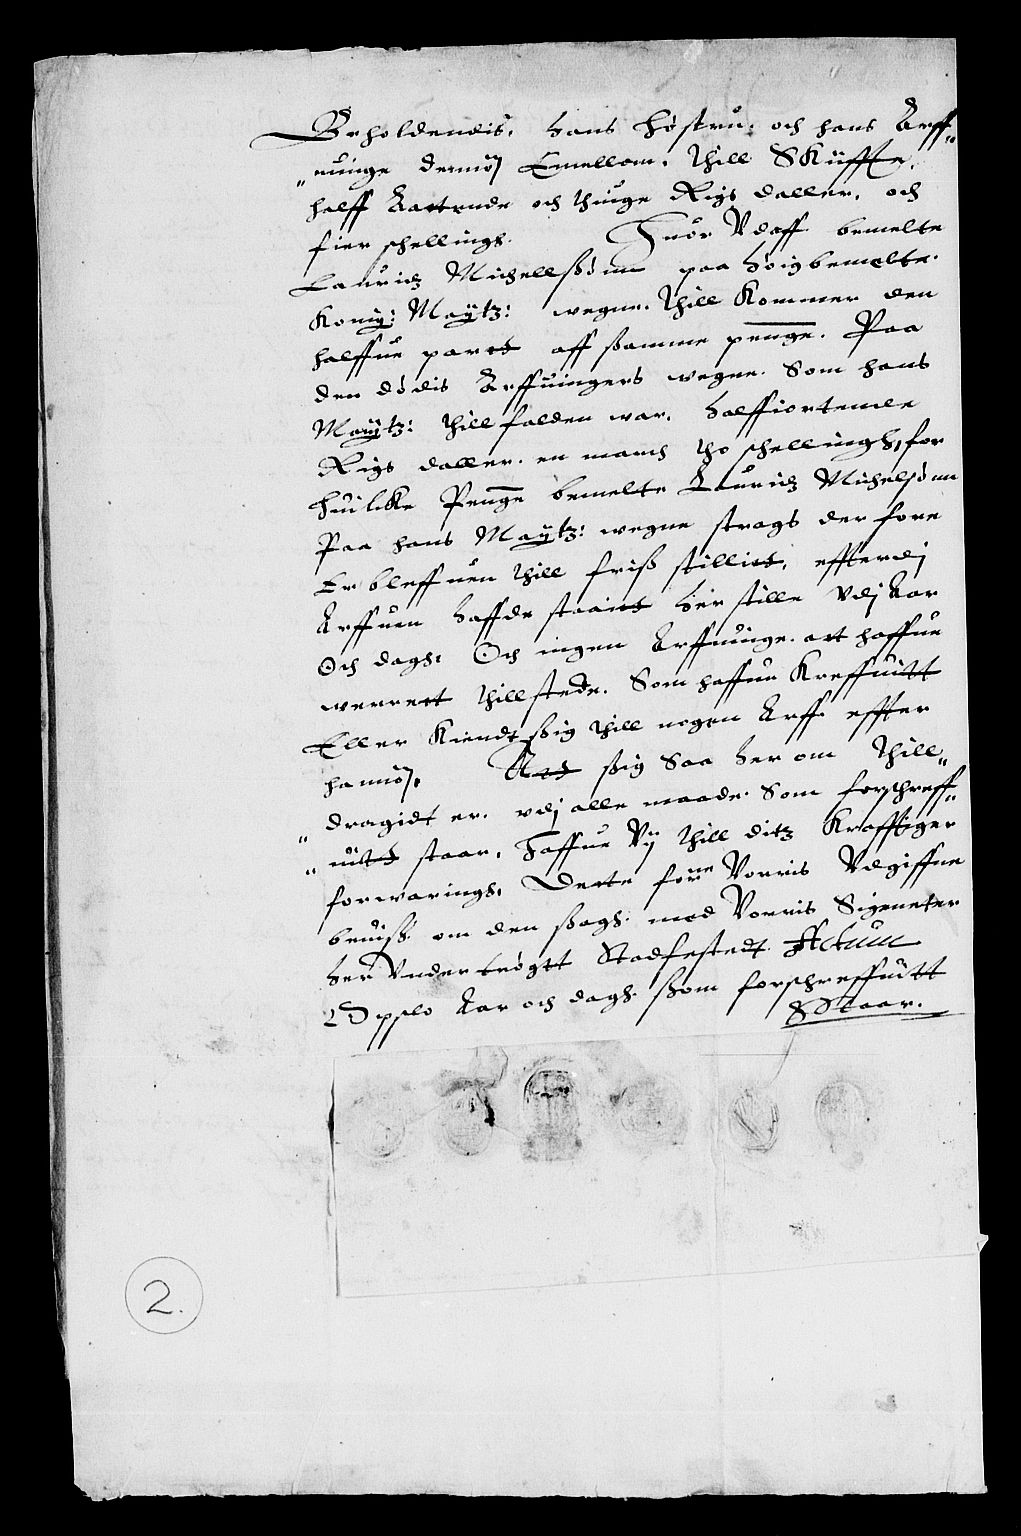 Beholdendis. hans høstru: och hans Arff„
„uinge dennom Emellom. Thill Skiffte.
halff Aartende och thiuge Rigs daller. och
fier schellingh. Huor Vdaff bemelte
Lauridz Michellsønn paa høigbemelte.
Konig: Maytz: wegne. Thill Kommer den
halffue part aff samme penge. Paa
den dødis Arffuingers wegne. Som hans
Maytz: thillfalden war. halffiortende
Rigs daller. en march tho schellingh, for
huilcke Penge bemelte Lauridz Michelsønn
Paa hans Maytz: wegne strags der fore
Er bleffuen thill friß stillict, effterdj
Arffuen haffde staait her stille vdj Aar
Och dagh: Och ingen Arffuinge. att haffue
werrett thillstede. Som haffue Kreffuitt
Eller Kiendt sig thill nogen Arff. effter
hannom. Att sig Saa her om thill„
„dragidt er. vdj alle maade. Som forschreff„
„uitt staar. Haffue Vij thill ditz Krafftiger
forwaringh: Dette forne Vorris Vdgiffne
beuiß. om den sagh. med Vorris Signeter
her Vnder trøgtt Stadfestedt. Actum
Opslo Aar och dagh. som forschreffuitt
Staar.
2.